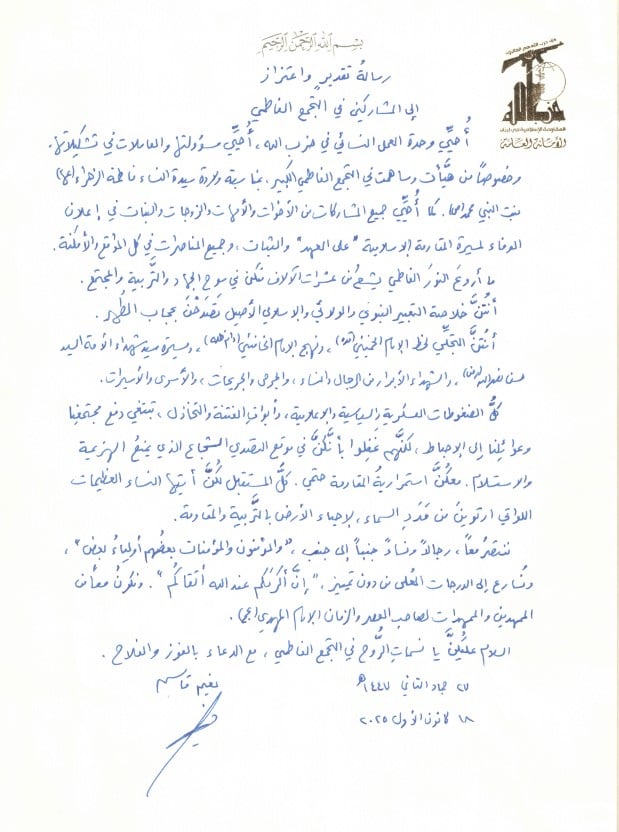 بسم الله الرحمن الرحيم
حزب الله
المقاومة الإسلامية في لبنان
الأمانة العامة
رسالةُ تقديرٍ واعتزاز
إلى المشاركين في التجمع الفاطمي
أُحيِّي وحدة العمل النسائي في حزب الله، أُحيِّي مسؤولتها والعاملات في تشكيلاتها،
وخصوصاً من هيَّأت وساهمت في التجمع الفاطمي الكبير، بمناسبة ولادة سيدة النساء فاطمة الزهراء(عها)
بنت النبي محمد(ص). كما أُحيِّي جميع المشاركات من الأخوات والأمهات والزوجات والبنات في إعلان
الوفاء لمسيرة المقاومة الإسلامية "على العهد" والثبات، وجميع المناصرات في كل المواقع والأمكنة.
ما أروعَ النورَ الفاطمي يشعُّ من عشرات الآلاف تمكن في سوح الجهاد والتَّربية والمجتمع.
أنتُنَّ خلاصة التعبير النبوي والولائي والإسلامي الأصيل تَصدَحْنَ بحجاب الطُهر.
أنتُنَّ التجلِّي لخط الإمام الخميني(قده)، ونهج الإمام الخامنئي(دام ظله)، ومسيرة سيد شهداء الأمة السيد
حسن نصر الله(رض)، والشهداء الأبرار من الرجال والنساء، والجرحى والجريحات، والأسرى والأسيرات.
كلُّ الضغوطات العسكرية والسياسية والإعلامية، وأبواق الفتنة والتخاذل، تبتغي دفع مجتمعنا
وعوائلنا إلى الإحباط، لكنَّهم غَفِلوا بأنَّكُنَّ في موقع التصدي الشجاع الذي يمنعُ الهزيمة
والاستسلام. معكُنَّ استمراريةُ المقاومة حتمي. كلُّ المستقبل لكُنَّ أيتها النساء العظيمات
اللواتي ارتوينَ من مَدَد السماء، لإحياء الأرض بالتَّربية والمقاومة.
ننتصرُ معاً، رجالاً ونساءً جنباً إلى جنب، "والمؤمنون والمؤمنات بعضُهم أولياءُ بعض"،
ونُسارع إلى الدرجات العُلى من دون تمييز، "إنَّ أكرمَكم عند الله أتقاكُم". ونكونُ معاً من
الممهدين والممهدات لصاحب العصر والزمان الإمام المهدي(عج).
السلام عليكُنَّ يا نسماتِ الرُّوح في التجمع الفاطمي، مع الدعاء بالفوز والفلاح.
٢٧ جماد الثاني ١٤٤٧هـ
نعيم قاسم
١٨ كانون الأول ٢٠٢٥